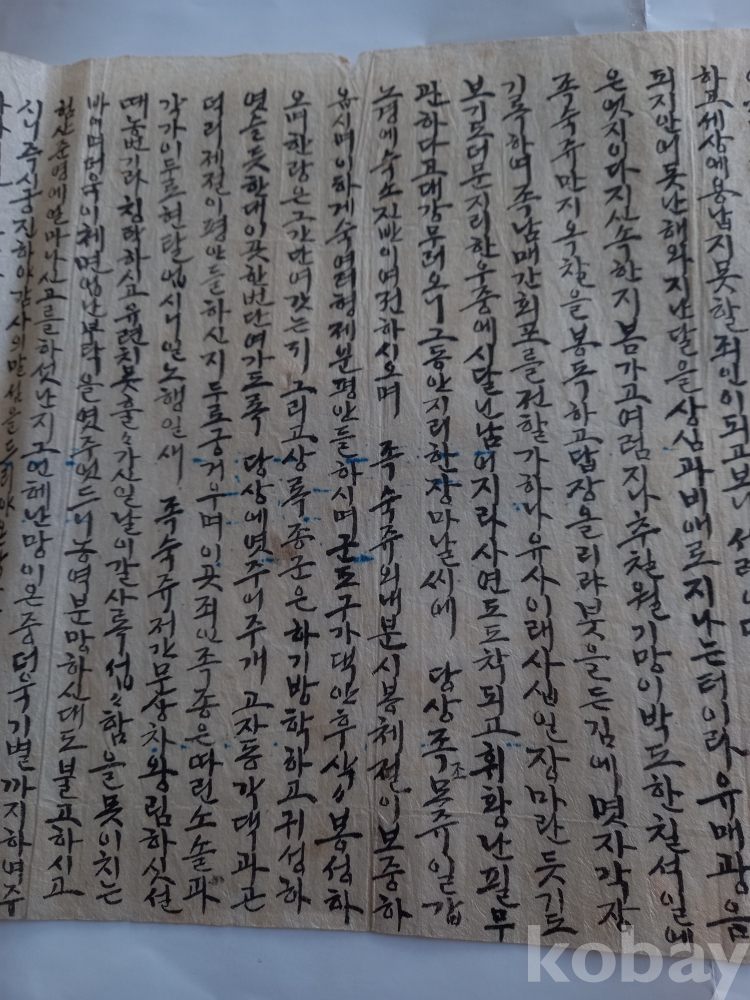 하고세상에용납지못할죄인이되고보니
되지안어못난해와지난달을상심과비애로지나는터이라유매광음
은멋지이다지신속한지봄가고여럼지나추칠월기망이박도한칠석일에
족숙쥬만지옥찰을봉독하고답장올리랴붓을든김에몃자각장
기록하여족남매간회포를전할가하나유사이래사생일장마란듯기도
보기도더문지리한우중에시달닌남어지라사연도도착되고휘황난필무
관하다고대강무러오니그동안지리한장마날씨에 당상족조못쥬일갑
노경에숙소진반이여전하시오며 족숙쥬외내분시봉체절이보중하
옵시며이하게숙여러형제분평안들하시며군도구가댁안후삭삭봉성하
오며한랑은그간단여갓는지그리고상륙종군은하기방학하고귀성하
엿슬듯한대이곳한번단여가도록 당상에엿주어주개고자동각댁과곤
덕리제절이평안들하신지두로궁거우며이곳죄인족종은따린소솔과
각가이두르현탈업시니일노행일새 족숙쥬저간문상차왕림하싯선
때농번기라침탁하시고유련치못훌훌가신일날이갈사록섭섭함을못이치는
바이며더욱이체면업난부탁을엿주엇드니농역분망하신대도불고하시고
험산준영에얼마나신고를하섯난지그언혜난망이온중더욱기별까지하여주
시니즉시궁진하야감사의말삼을드리야온당
kobay